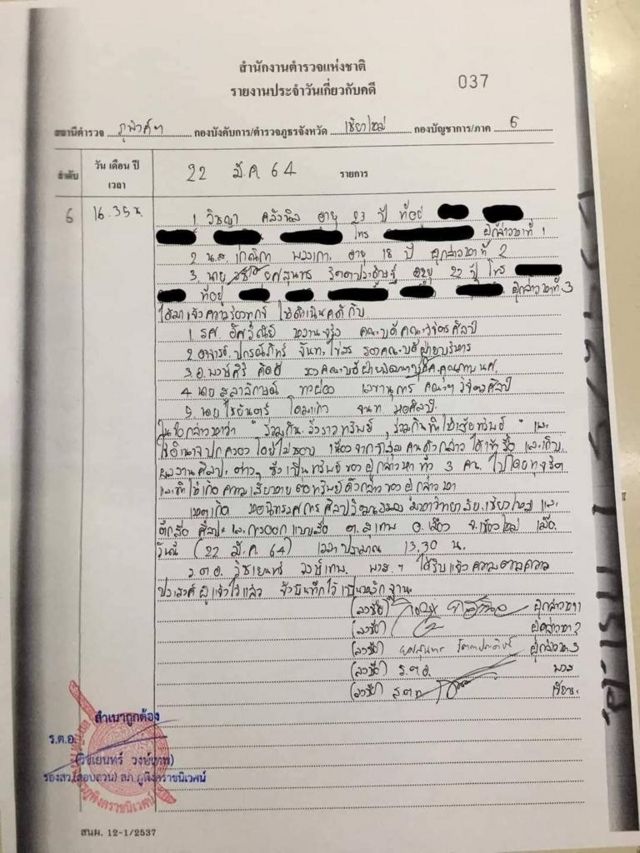 สำนักงานตำรวจแห่งชาติ
รายงานประจำวันเกี่ยวกับคดี
037
สถานีตำรวจ ภูพิงค์ฯ กองบังคับการ/ตำรวจภูธรจังหวัด เชียงใหม่ กองบัญชาการ/ภาค 5
ลำดับ วัน เดือน ปี เวลา 22 มี.ค 64 รายการ
6 16.35 น. 1 วิธญา คลังนิล อายุ 23 ปี ที่อยู่
โทร ผู้กล่าวหาที่ 1
2 น.ส. อายุ 18 ปี ผู้กล่าวหาที่ 2
3. นาย ยศสุนทร รัตตประดิษฐ์ อายุ 22 ปี โทร
ที่อยู่ ผู้กล่าวหาที่ 3
ได้มาแจ้งความร้องทุกข์ ให้ดำเนินคดี กับ
1 รศ อัศวิณีย์ หวานจริง คณบดีคณะวิจิตรศิลป์
2 อาจารย์ ปกรณ์ภัทร์ จันทะไข่สร รองคณบดีฝ่ายบริหาร
3. อ. พงษ์ศิริ คิดดี รองคณบดีฝ่าย
4 นาย ทาช่อง เลขานุการ คณะฯ วิจิตรศิลป์
5 นาย ไชยันตร์
ในข้อกล่าวหาว่า "ร่วมกัน ลักทรัพย์, ร่วมกันทำให้เสียทรัพย์" และ
ใช้อำนาจปกครอง โดยไม่ชอบ เนื่องจากกลุ่มคนดังกล่าว ได้เข้ารื้อ และเก็บ
ผลงานศิลปะ ต่างๆ ซึ่งเป็นทรัพย์ของ ผู้กล่าวหา ทั้ง 3 คน ไปโดยทุจริต
และทำให้เกิด ความเสียหาย ต่อทรัพย์ดังกล่าวของ ผู้กล่าวหา
เหตุเกิด หอนิทรรศการศิลปวัฒนธรรม มหาวิทยาลัยเชียงใหม่ และ
ตึกสื่อ ศิลปะ และการออกแบบสื่อ ต.สุเทพ อ.เมือง จ.เชียงใหม่ เมื่อ
วันนี้ (22 มี.ค 64) เวลาประมาณ 13.30 น.
ร.ต.อ. วิชเยนทร์ วงษ์เทพ. พงส.ฯ ได้รับแจ้งความตามความ
ประสงค์ผู้แจ้งไว้แล้ว จึงบันทึกไว้เป็นหลักฐาน
(ลงชื่อ) ผู้กล่าวหา 1
(ลงชื่อ) ผู้กล่าวหา 2
(ลงชื่อ) ยศสุนทร รัตตประดิษฐ์ ผู้กล่าวหา 3
(ลงชื่อ) ร.ต.อ. พงส
(ลงชื่อ) ส.ต.ท
สำเนาถูกต้อง
ร.ต.อ.
(วิชเยนทร์ วงษ์เทพ)
รองสว.(สอบสวน) สภ.ภูพิงคราชนิเวศน์
สนผ. 12-1/2537